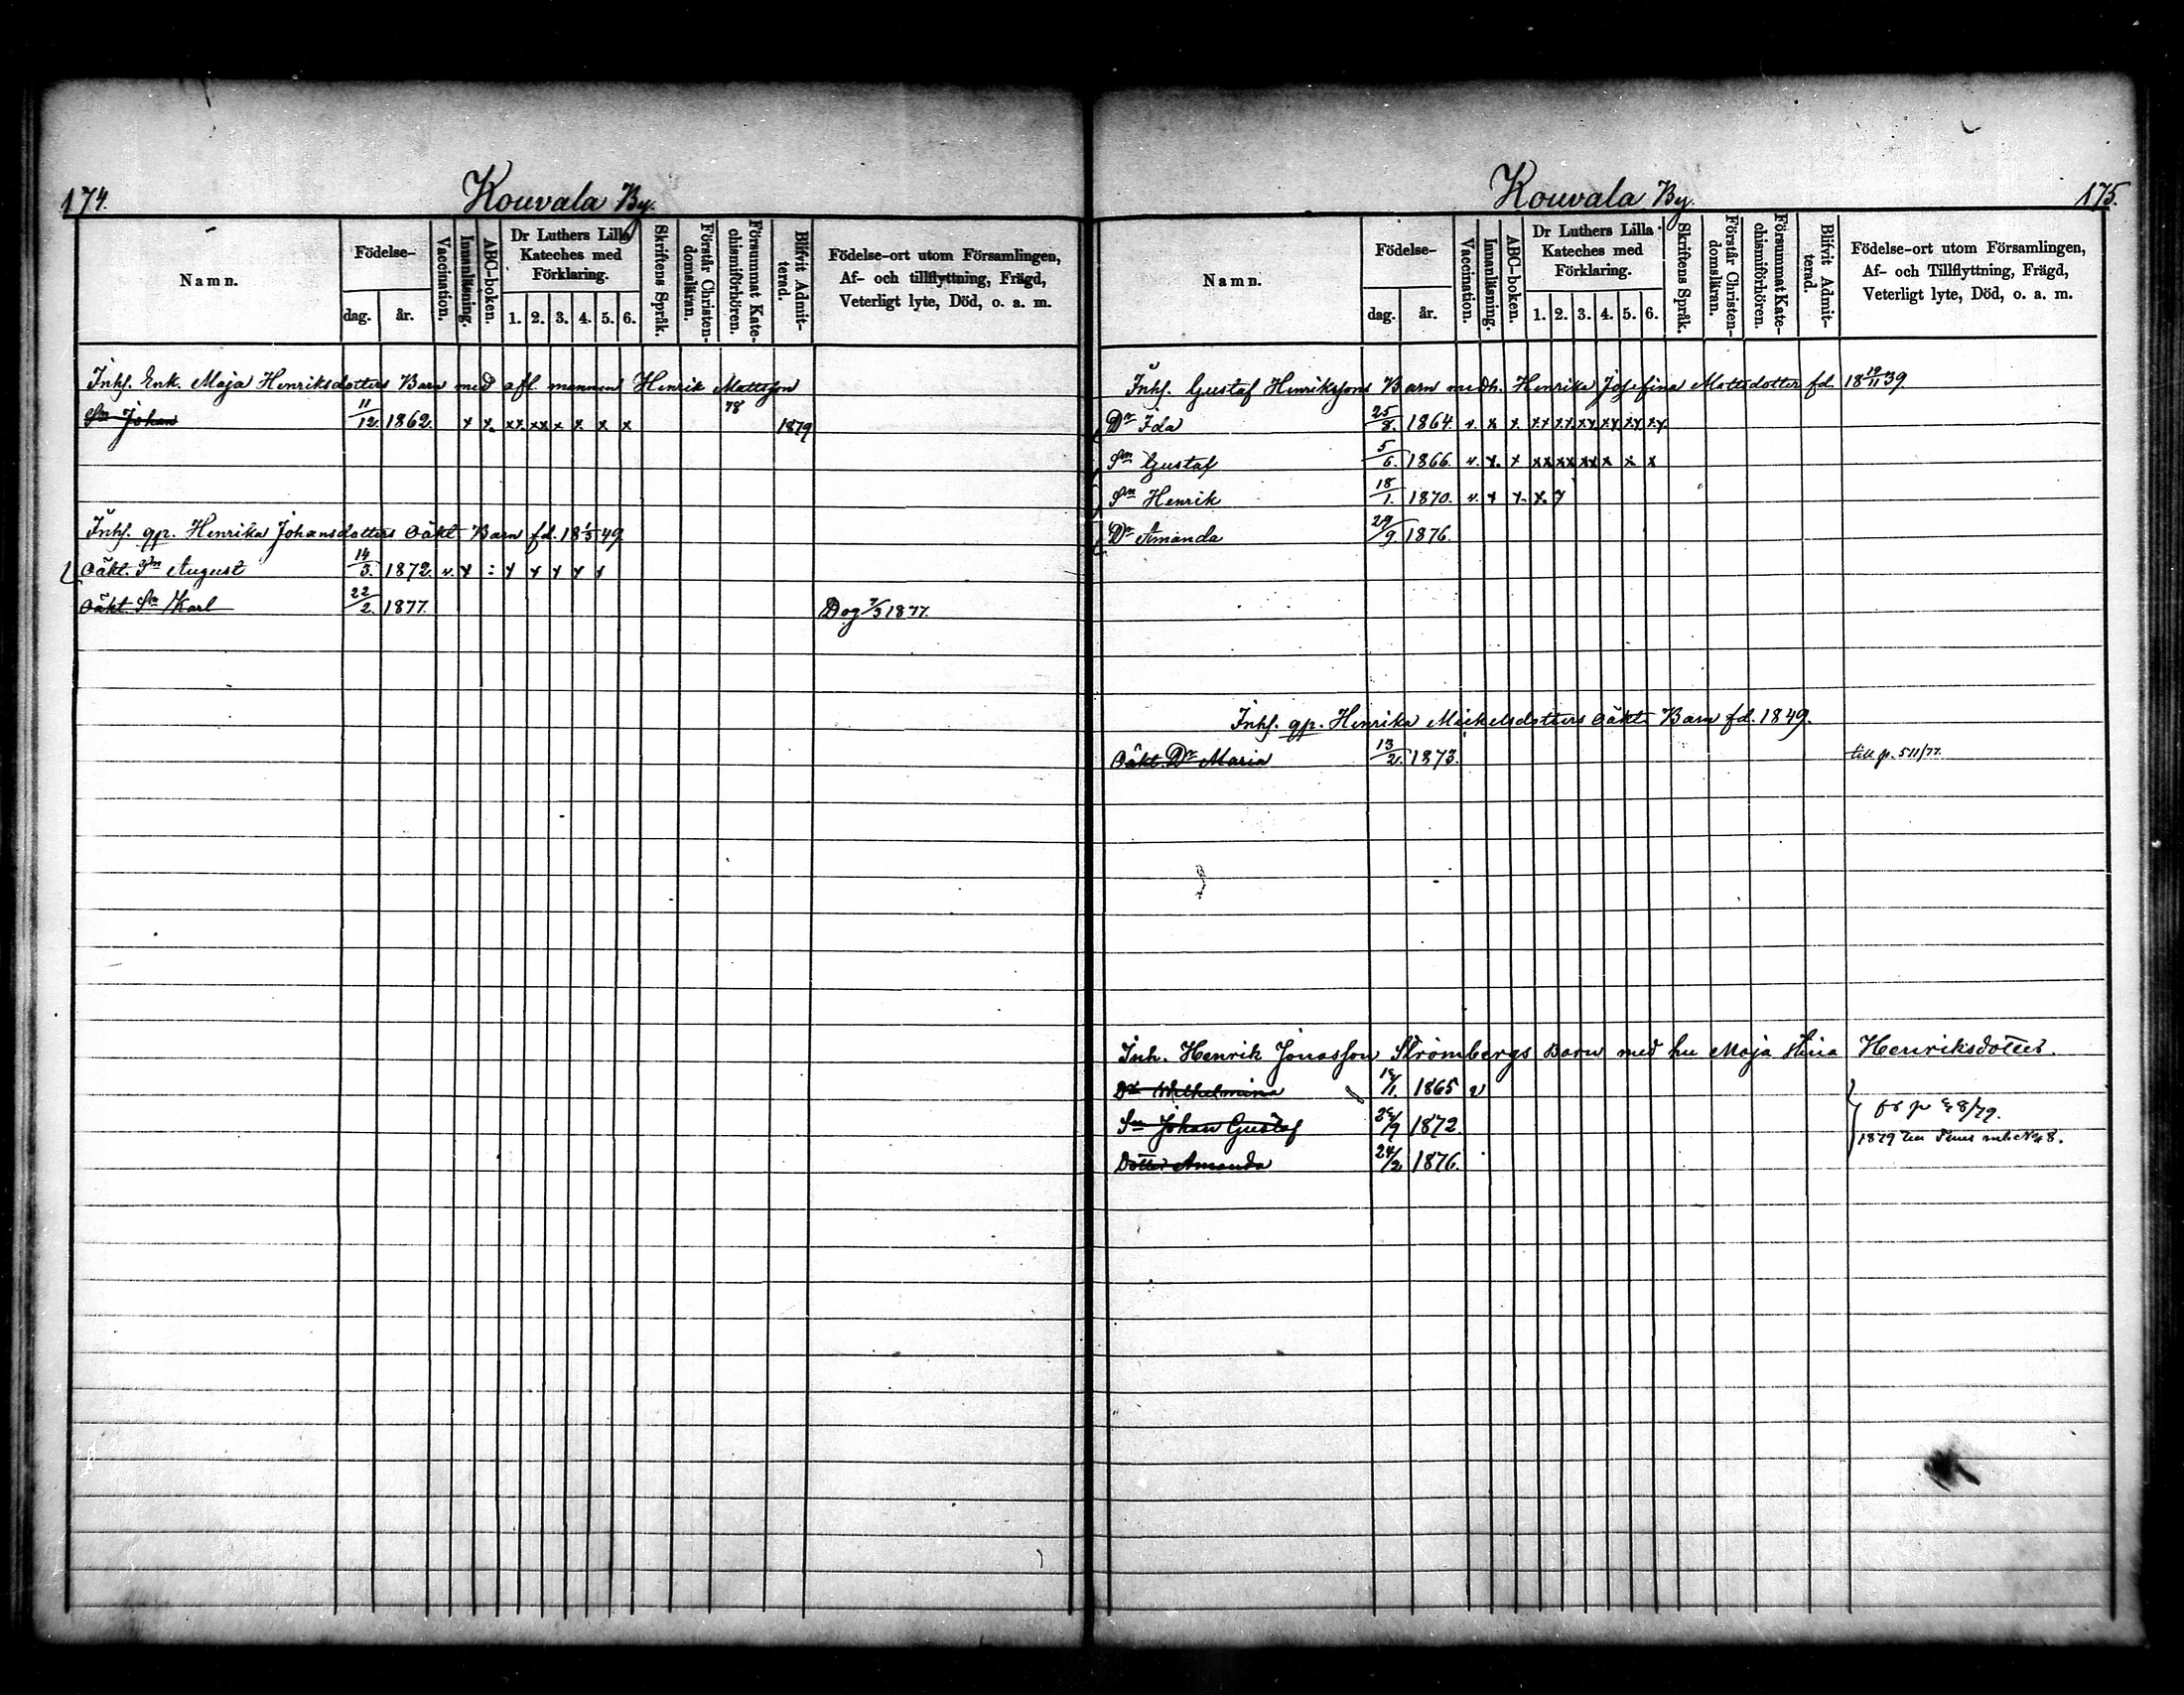 174.
Kouvala By.
Namn.
Födelse-
dag.
år.
Vaccination.
Innanläsning.
ABC-boken.
Dr Luthers Lilla
Kateches med
Förklaring.
1. 2. 3. 4. 5. 6.
Skriftens Språk.
Förstår Christen-
domsläran.
Försummat Kate-
chismiförhören.
Blifvit Admit-
terad.
Födelse-ort utom Församlingen,
Af- och tillflyttning, Frägd,
Veterligt lyte, Död, o. a. m.
Inhs. Enk. Maja Henriksdotters Barn med afl. mannen Henrik Mattsson
Sn Johan 11/12. 1862. x x. xx. xx x x. x x 78 1879
Inhs. qp. Henrika Johansdotters Oäkt Barn fd. 18 1/5 49
Oäkt. Sn August 14/3. 1872. v. x : x x x x x
Oäkt. Sn Karl 22/2. 1877. Dog 7/3 1877.
175.
Kouvala By.
Namn.
Födelse-
dag.
år.
Vaccination.
Innanläsning.
ABC-boken.
Dr Luthers Lilla
Kateches med
Förklaring.
1. 2. 3. 4. 5. 6.
Skriftens Språk.
Förstår Christen-
domsläran.
Försummat Kate-
chismiförhören.
Blifvit Admit-
terad.
Födelse-ort utom Församlingen,
Af- och Tillflyttning, Frägd,
Veterligt lyte, Död, o. a. m.
Inhs. Gustaf Henrikssons Barn med h. Henrika Josefina Mattsdotter fd. 18 19/11 39
Dr Ida 25/8. 1864. v. x x. xx xx xx xx xx xx
Sn Gustaf 5/6. 1866. v. x. x xx xx xx x x x
Sn Henrik 18/1. 1870. v. x x. x. x
Dr Amanda 29/9 1876.
Inhs. qp. Henrika Mickelsdotters Oäkt Barn fd. 1849.
Oäkt. Dr Maria 13/2. 1873. till p. 511/77.
Inh. Henrik Jonasson Strömbergs Barn med hu Maja Stina Henriksdotter.
Dr Wilhelmina 1865 v
Sn Johan Gustaf 1872.
Dotter Amanda 24/2 1876.
1879